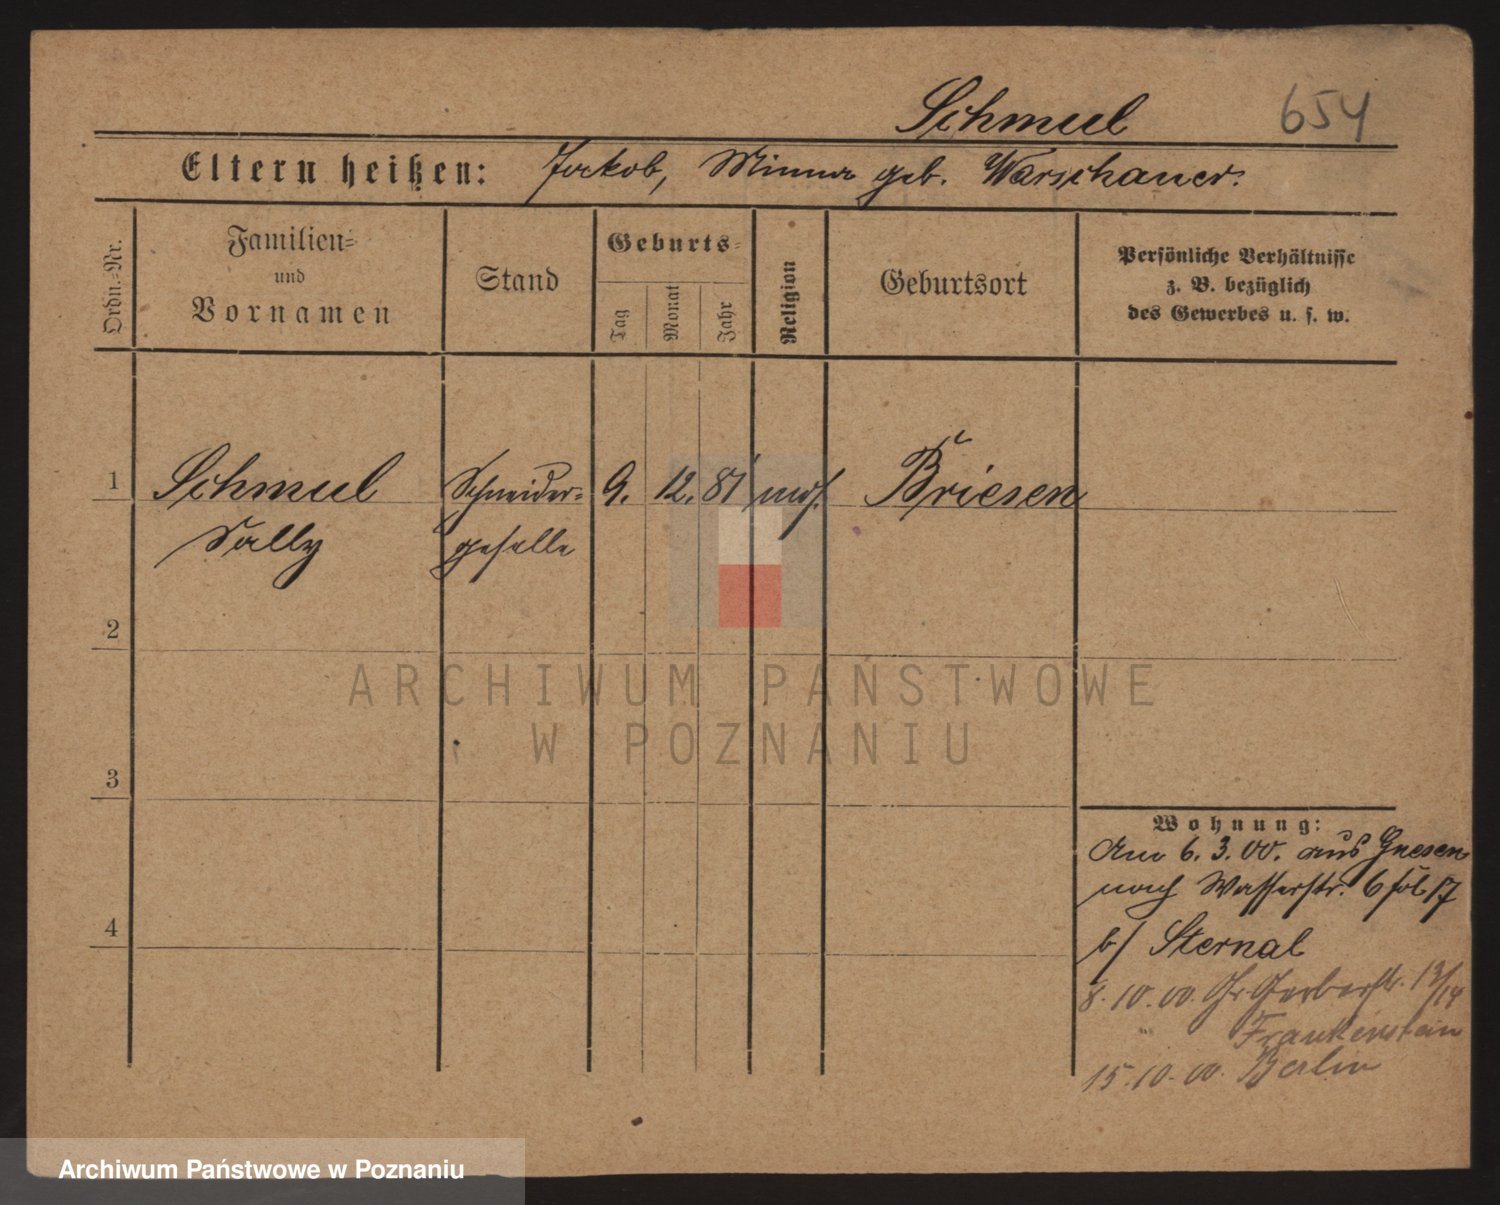 Schmul 654
Eltern heißen: Jakob, Minna geb. Warschauer.
Ordn.-Nr.
Familien-
und
Vornamen
Stand
Geburts-
Tag
Monat
Jahr
Religion
Geburtsort
Persönliche Verhältnisse
z. B. bezüglich
des Gewerbes u. s. w.
1 Schmul Schneider- 9. 12. 81 mos. Briesen
Sally geselle
2
3
4
Wohnung:
Am 6. 3. 00. aus Gnesen
nach Wasserstr. 6 17
b/ Sternal
8. 10. 00. Gr. Gerberstr. 13/14
Frankenstein
15. 10. 00. Berlin
ARCHIWUM PAŃSTWOWE
W POZNANIU
Archiwum Państwowe w Poznaniu